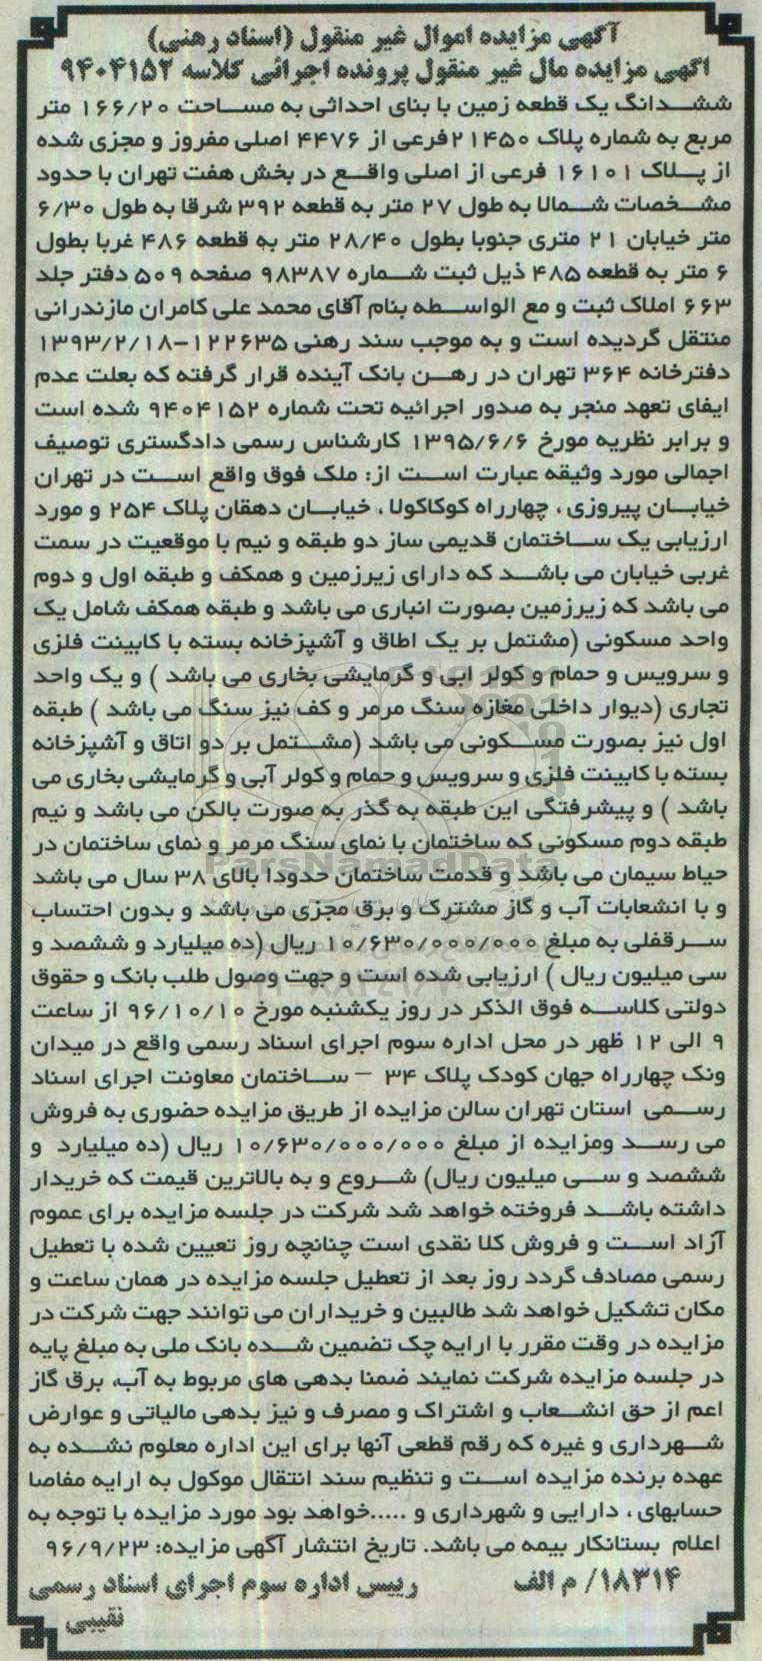 آگهی مزایده اموال غیر منقول (اسناد رهنی)
اگهی مزایده مال غیر منقول پرونده اجرائی کلاسه ۹۴۰۴۱۵۲
ششدانگ یک قطعه زمین با بنای احداثی به مساحت ۱۶۶/۲۰ متر
مربع به شماره پلاک ۲۱۴۵۰فرعی از ۴۴۷۶ اصلی مفروز و مجزی شده
از پلاک ۱۶۱۰۱ فرعی از اصلی واقع در بخش هفت تهران با حدود
مشخصات شمالا به طول ۲۷ متر به قطعه ۳۹۲ شرقا به طول ۶/۳۰
متر خیابان ۲۱ متری جنوبا بطول ۲۸/۴۰ متر به قطعه ۴۸۶ غربا بطول
۶ متر به قطعه ۴۸۵ ذیل ثبت شماره ۹۸۳۸۷ صفحه ۵۰۹ دفتر جلد
۶۶۳ املاک ثبت و مع الواسطه بنام آقای محمد علی کامران مازندرانی
منتقل گردیده است و به موجب سند رهنی ۱۲۲۶۳۵-۱۳۹۳/۲/۱۸
دفترخانه ۳۶۴ تهران در رهن بانک آینده قرار گرفته که بعلت عدم
ایفای تعهد منجر به صدور اجرائیه تحت شماره ۹۴۰۴۱۵۲ شده است
و برابر نظریه مورخ ۱۳۹۵/۶/۶ کارشناس رسمی دادگستری توصیف
اجمالی مورد وثیقه عبارت است از: ملک فوق واقع است در تهران
خیابان پیروزی ، چهارراه کوکاکولا ، خیابان دهقان پلاک ۲۵۴ و مورد
ارزیابی یک ساختمان قدیمی ساز دو طبقه و نیم با موقعیت در سمت
غربی خیابان می باشد که دارای زیرزمین و همکف و طبقه اول و دوم
می باشد که زیرزمین بصورت انباری می باشد و طبقه همکف شامل یک
واحد مسکونی (مشتمل بر یک اطاق و آشپزخانه بسته با کابینت فلزی
و سرویس و حمام و کولر ابی و گرمایشی بخاری می باشد ) و یک واحد
تجاری (دیوار داخلی مغازه سنگ مرمر و کف نیز سنگ می باشد ) طبقه
اول نیز بصورت مسکونی می باشد (مشتمل بر دو اتاق و آشپزخانه
بسته با کابینت فلزی و سرویس و حمام و کولر آبی و گرمایشی بخاری می
باشد ) و پیشرفتگی این طبقه به گذر به صورت بالکن می باشد و نیم
طبقه دوم مسکونی که ساختمان با نمای سنگ مرمر و نمای ساختمان در
ParsNamadData
حیاط سیمان می باشد و قدمت ساختمان حدودا بالای ۳۸ سال می باشد
و با انشعابات آب و گاز مشترک و برق مجزی می باشد و بدون احتساب
سرقفلی به مبلغ ۱۰/۶۳۰/۰۰۰/۰۰۰ ریال (ده میلیارد و ششصد و
سی میلیون ریال ) ارزیابی شده است و جهت وصول طلب بانک و حقوق
دولتی کلاسه فوق الذکر در روز یکشنبه مورخ ۹۶/۱۰/۱۰ از ساعت
۹ الی ۱۲ ظهر در محل اداره سوم اجرای اسناد رسمی واقع در میدان
ونک چهارراه جهان کودک پلاک ۳۴ – ساختمان معاونت اجرای اسناد
رسمی استان تهران سالن مزایده از طریق مزایده حضوری به فروش
می رسد ومزایده از مبلغ ۱۰/۶۳۰/۰۰۰/۰۰۰ ریال (ده میلیارد و
ششصد و سی میلیون ریال) شروع و به بالاترین قیمت که خریدار
داشته باشد فروخته خواهد شد شرکت در جلسه مزایده برای عموم
آزاد است و فروش کلا نقدی است چنانچه روز تعیین شده با تعطیل
رسمی مصادف گردد روز بعد از تعطیل جلسه مزایده در همان ساعت و
مکان تشکیل خواهد شد طالبین و خریداران می توانند جهت شرکت در
مزایده در وقت مقرر با ارایه چک تضمین شده بانک ملی به مبلغ پایه
در جلسه مزایده شرکت نمایند ضمنا بدهی های مربوط به آب، برق گاز
اعم از حق انشعاب و اشتراک و مصرف و نیز بدهی مالیاتی و عوارض
شهرداری و غیره که رقم قطعی آنها برای این اداره معلوم نشده به
عهده برنده مزایده است و تنظیم سند انتقال موکول به ارایه مفاصا
حسابهای ، دارایی و شهرداری و .....خواهد بود مورد مزایده با توجه به
اعلام بستانکار بیمه می باشد. تاریخ انتشار آگهی مزایده: ۹۶/۹/۲۳
۱۸۳۱۴/ م الف رییس اداره سوم اجرای اسناد رسمی
نقیبی